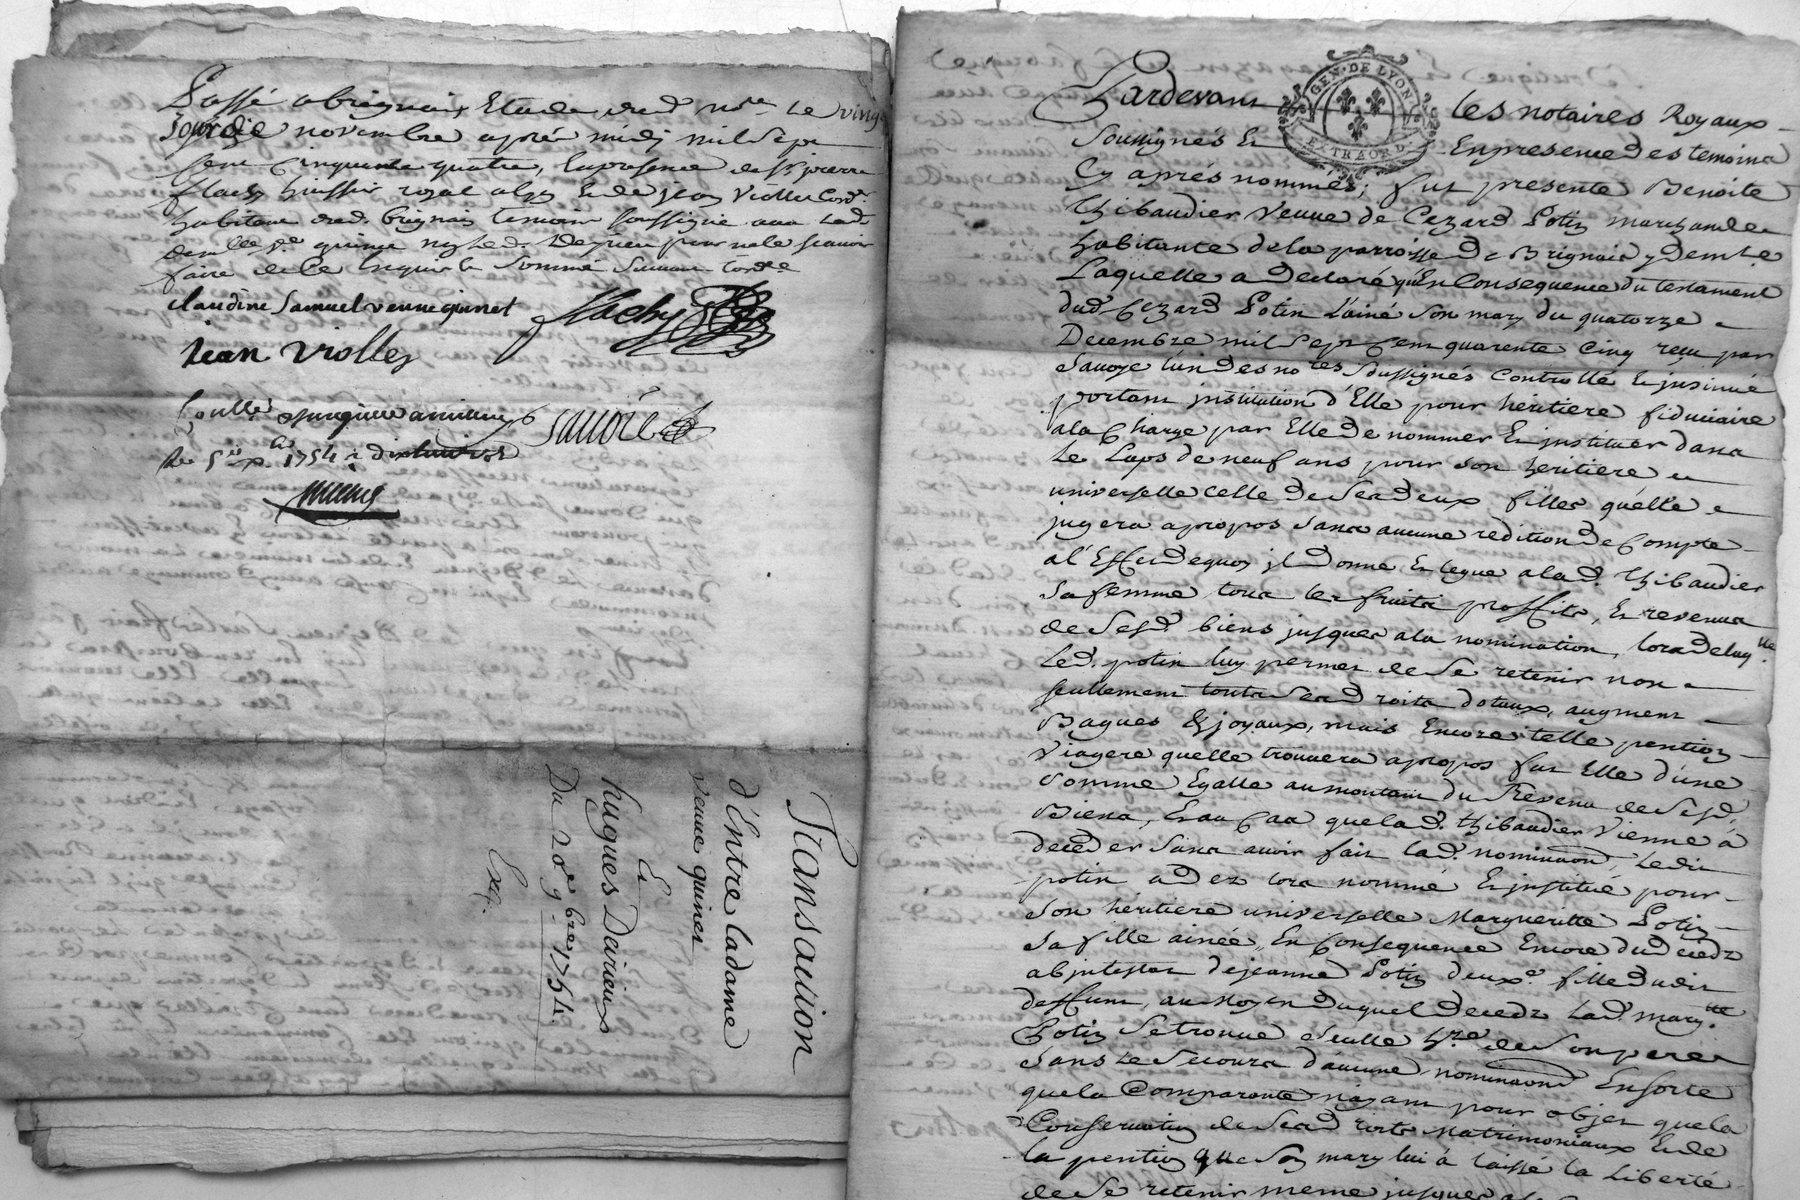 Passé a brignais, Etude dud. nore. Le vingt
novembre après midy mil sept
cent cinquante quatre, En presence de Sr. pierre
flachy huissier royal et de jean violley Cord.
habitant dud. brignais temoins soussignés avec lad.
faire de ce Enquis & sommé suivant l'ordce
claudine samuel veuve guinet
flachy
jean violley
savoie
1754
Transaction
d'Entre la dame
veuve guinet
Et
hugues Dairieux
Du 20e 9bre 1754.
Exp.
GEN. DE LYON
EXTRAORD.
Pardevant les notaires Royaux
soussignés Et En presence des temoins
Cy aprés nommés, fut presente Benoite
thibaudier veuve de Cezard Potin marchande
habitante de la parroisse de Brignais y demte.
Laquelle a declaré qu'En Consequence du testament
dud. Cezard Potin L'aine son mary du quatorze
Decembre mil sept cent quarente cinq reçu par
savoye l'un des nores soussignés controllé & insinué
portant institution d'Elle pour héritiere fiduciaire
a la Charge par Elle de nommer & instituer dans
Le Laps de neuf ans pour son heritiere
universelle celle de ses deux filles quélle
jugera apropos sans aucune redition de Compte
a l'Effet dequoy il donne & legue a lad. thibaudier
sa femme tous les fruits proffits, & revenus
de sesd. biens jusques a la nomination, lors de laqlle.
Led. potin luy permet de se retenir non
seullement touts ses droits dotaux, augment
Bagues & joyaux, mais Encore telle pention
viagere quelle trouvera apropos fut Elle d'une
somme Egalle au montant du Revenu de sesd.
Biens, Et au Cas que lad. thibaudier vienne à
deceder sans avoir fait lad. nominaon, Ledit
potin a dez lors nommé & institué pour
son héritiere universelle Margueritte Potin
sa fille ainée, En Consequence Encore du decèdz
abjntestat de jeanne Potin deuxe. fille dudit
deffunt, au moyen duquel decedz Lad. margtte.
Potin se trouve seulle hre. de son pere
sans Le secours d'aucune nominaon Ensorte
que la Comparante n'ayant pour objet que la
Conservation de ses droits matrimoniaux & de
la pention que son mary lui à laissé la Liberté
de se retenir meme jusques